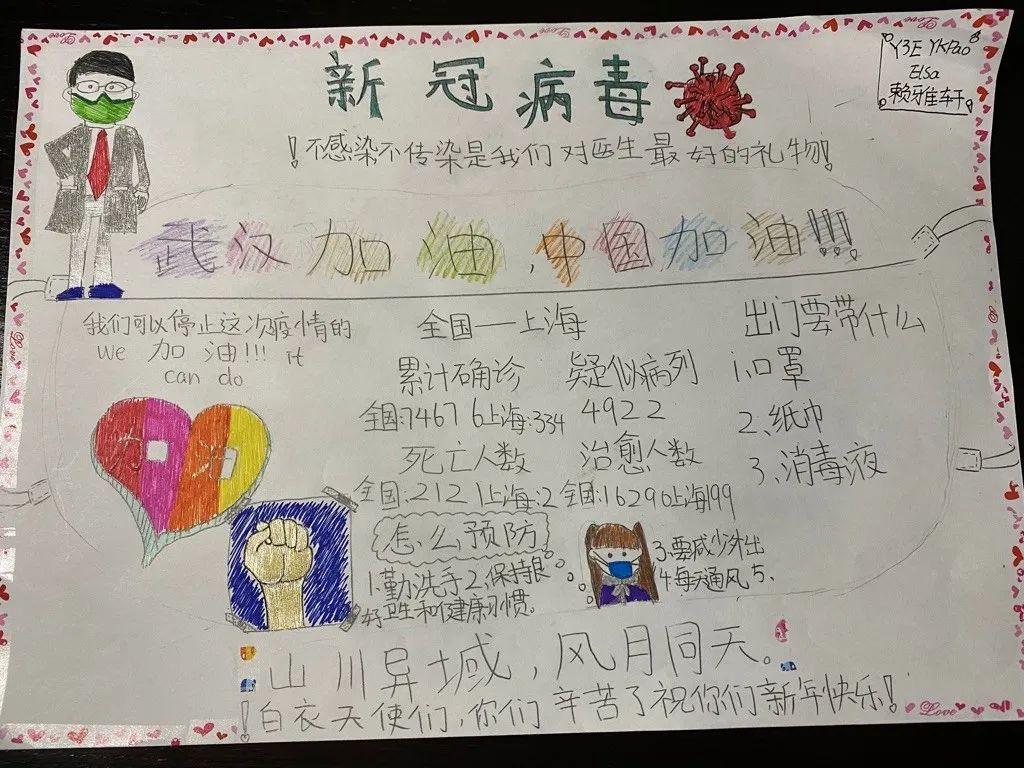 新冠病毒
Y3E YKPao
Elsa
赖雅轩
!不感染不传染是我们对医生最好的礼物!
武汉加油,中国加油!!!
我们可以停止这次疫情的
We 加油!!! It
can do
加油
全国——上海
累计确诊 疑似病列
全国:74676上海:334 4922
死亡人数 治愈人数
全国:2121上海:2 全国:16290上海99
出门要带什么
1.口罩
2.纸巾
3.消毒液
怎么预防
1.勤洗手2.保持良
好卫生和健康习惯。
3.要减少外出
4.每天通风5、
山川异域,风月同天。
!白衣天使们,你们辛苦了祝你们新年快乐!
Love